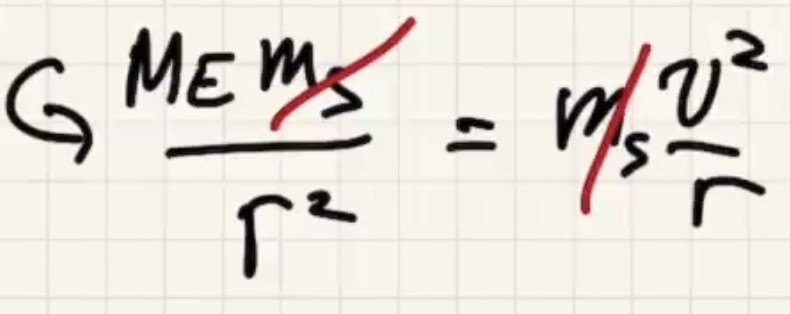 G M_E m_s / r² = m_s v² / r